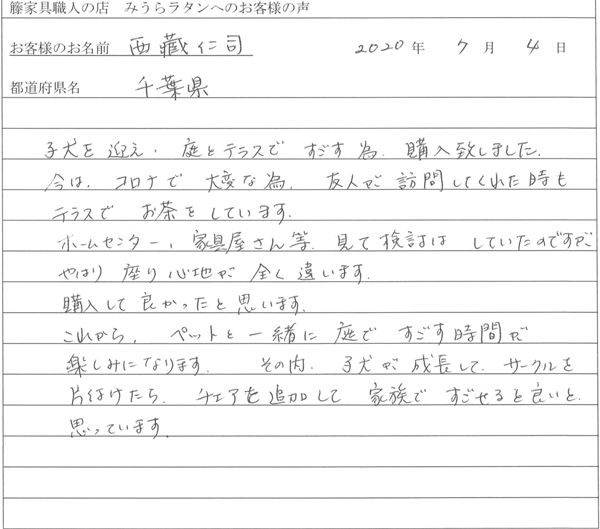 籐家具職人の店　みうらラタンへのお客様の声
お客様のお名前　西藏仁司　2020年　7月　4日
都道府県名　千葉県
子犬を迎え、庭とテラスですごす為、購入致しました。
今は、コロナで大変な為、友人が訪問してくれた時も
テラスでお茶をしています。
ホームセンター、家具屋さん等、見て検討はしていたのですが
やはり座り心地が全く違います。
購入して良かったと思います。
これから、ペットと一緒に庭ですごす時間が
楽しみになります。　その内、子犬が成長して、サークルを
片付けたら、チェアを追加して家族ですごせると良いと
思っています。